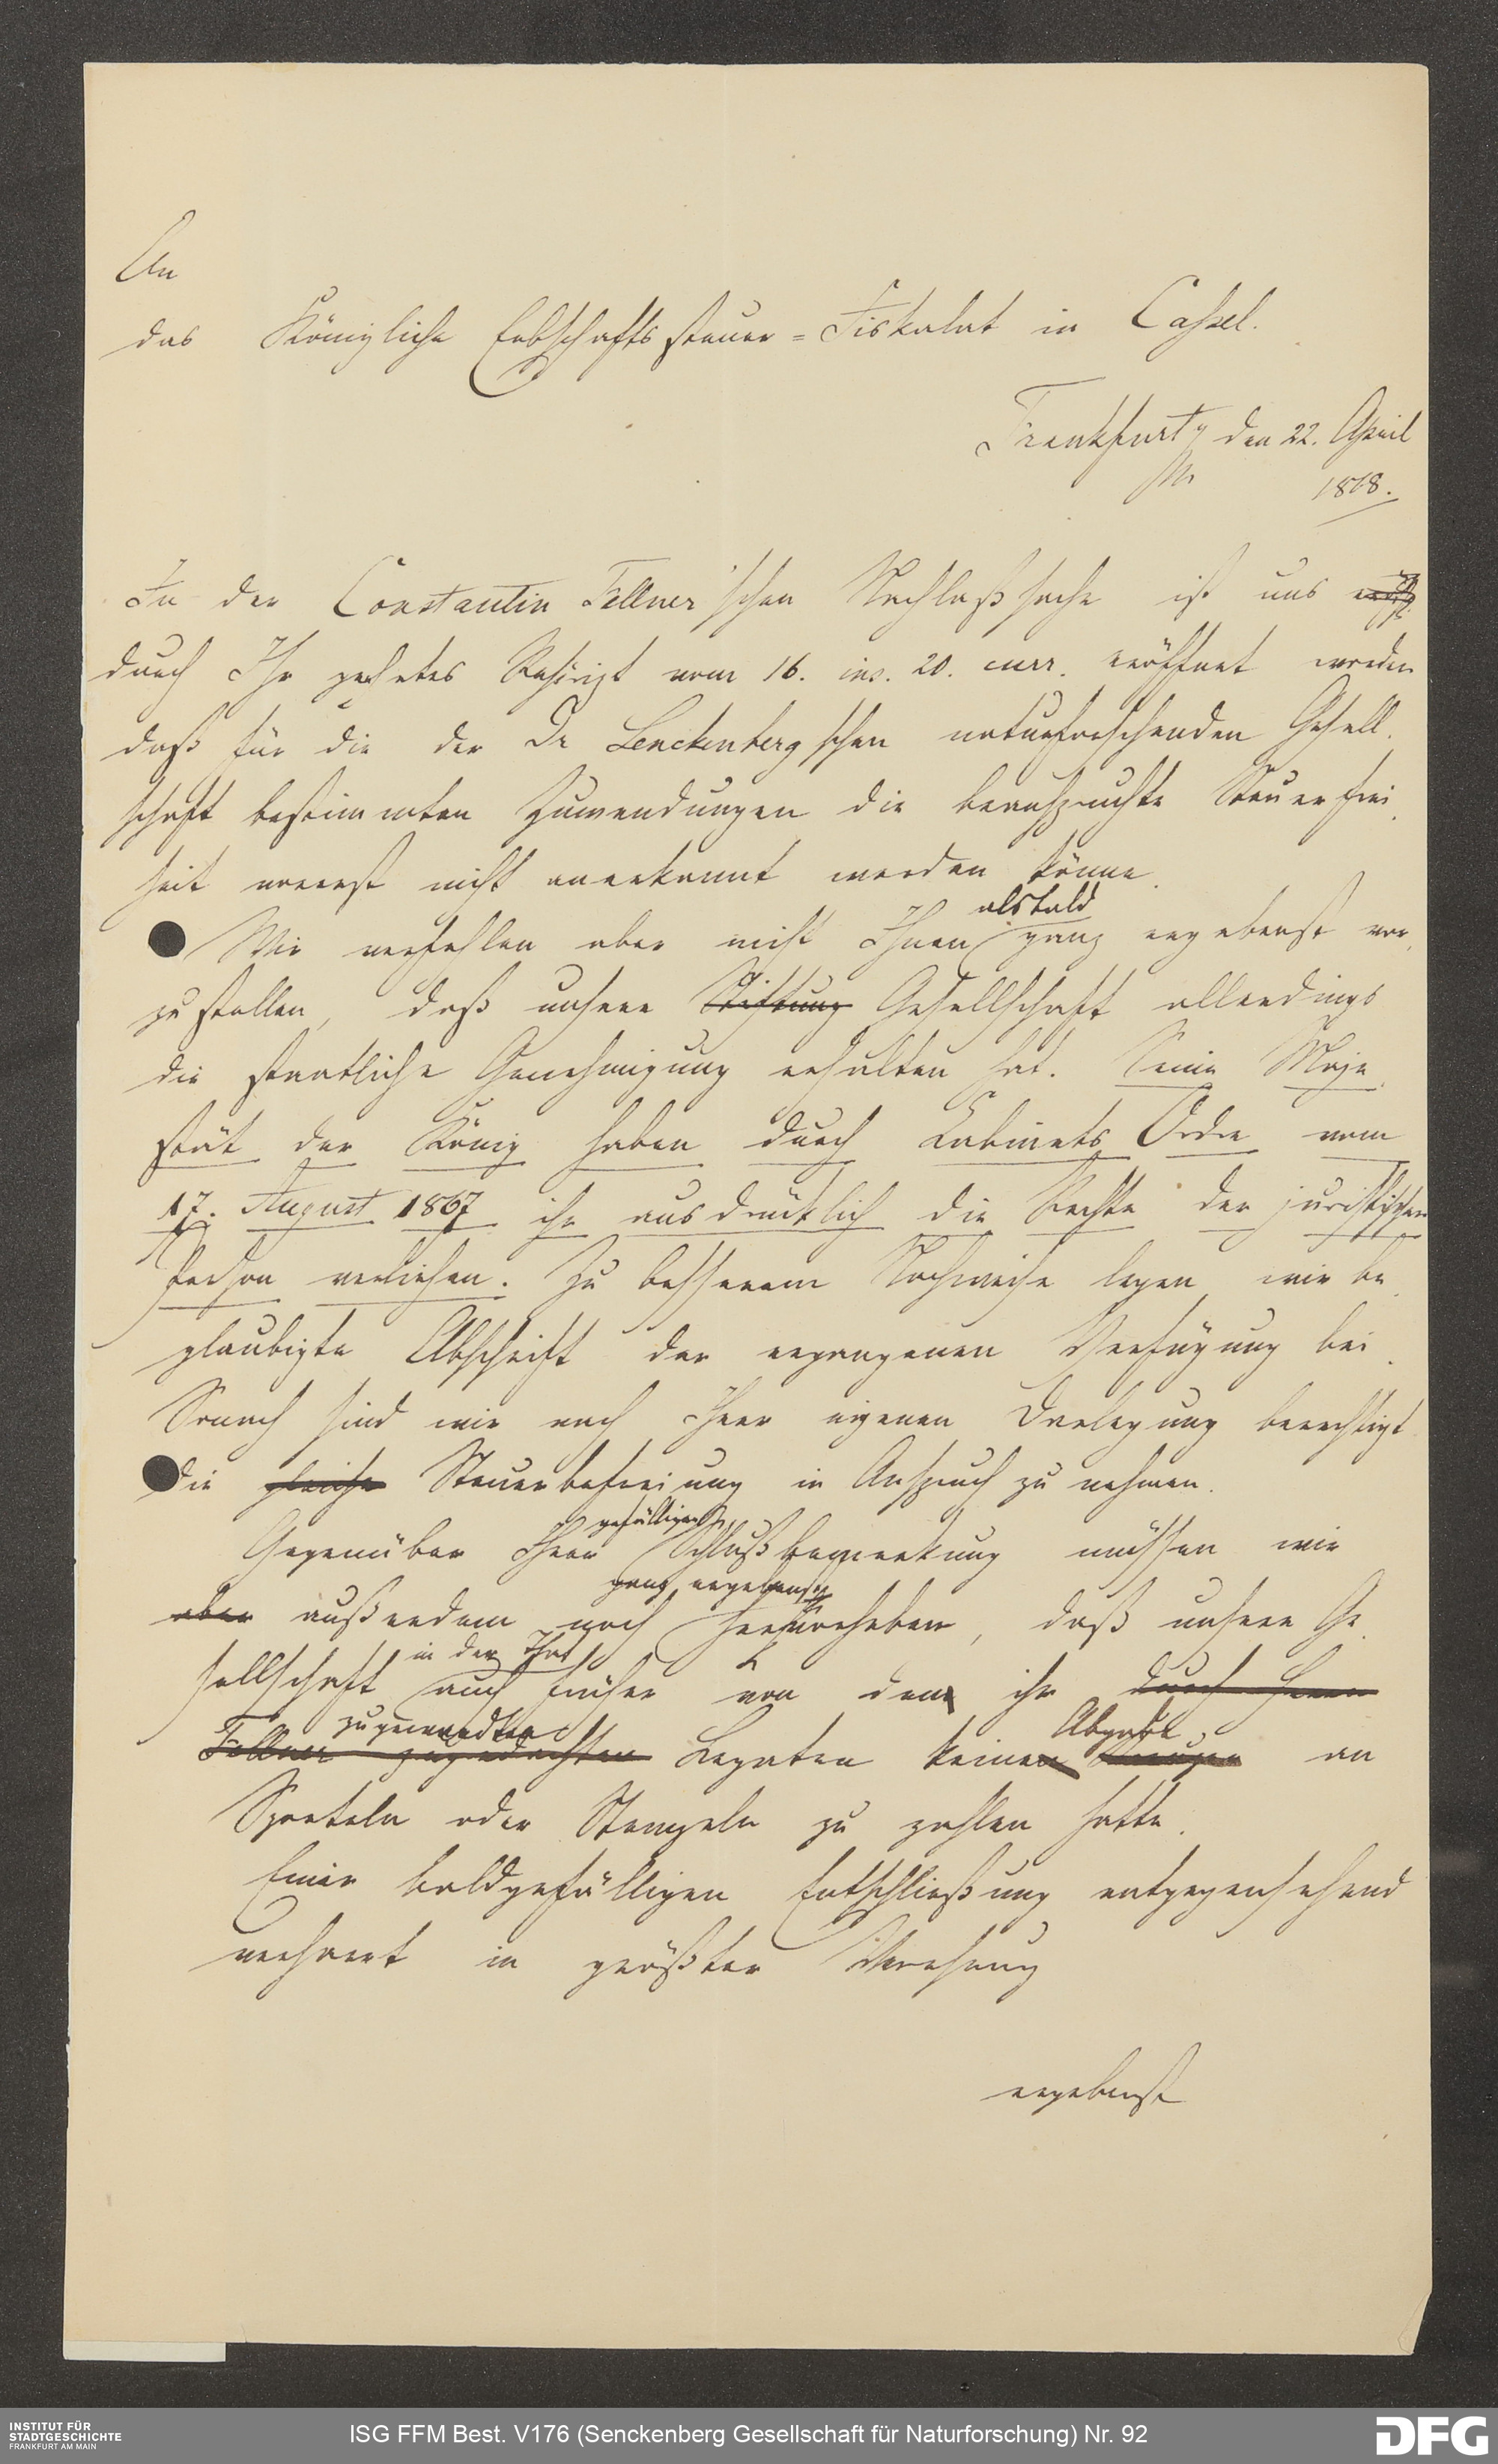 An
das Königliche Erbschaftssteuer-Fiskalat in Cassel.
Frankfurt / den 22. April
M
1868.
In der Constantin Fellner'schen Nachlaßsache ist uns
durch Ihr geehrtes Reskript vom 16. ins. 20. curr. eröffnet worden
daß für die der Dr Senckenberg'schen naturforschenden Gesell-
schaft bestimmten Zuwendungen die beanspruchte Steuerfrei-
heit vorerst nicht anerkannt werden könne.
alsbald
Wir verfehlen aber nicht Ihnen ganz ergebenst vor-
zustellen, daß unsere Stiftung Gesellschaft allerdings
die staatliche Genehmigung erhalten hat. Seine Maje-
stät der König haben durch Kabinets Ordre vom
17. August 1867 ihr ausdrücklich die Rechte der juristischen
Person verliehen. Zu besserem Nachweise legen wir be-
glaubigte Abschrift der ergangenen Verfügung bei.
Sonach sind wir nach Ihrer eigenen Darlegung berechtigt
die gleiche Steuerbefreiung in Anspruch zu nehmen.
gefälligen
Gegenüber Ihrer Schlußbemerkung müssen wir
ganz ergebenst
aber außerdem noch hervorheben, daß unsere Ge-
in der That
sellschaft auch früher von den ihr durch Herrn
zugewendten Abgabe
Fellner zugedachten Legaten keinen an
Sporteln oder Stempeln zu zahlen hatte.
Einer baldgefälligen Entschließung entgegensehend
verharrt in größter Verehrung
ergebenst
INSTITUT FÜR
STADTGESCHICHTE
FRANKFURT AM MAIN
ISG FFM Best. V176 (Senckenberg Gesellschaft für Naturforschung) Nr. 92
DFG